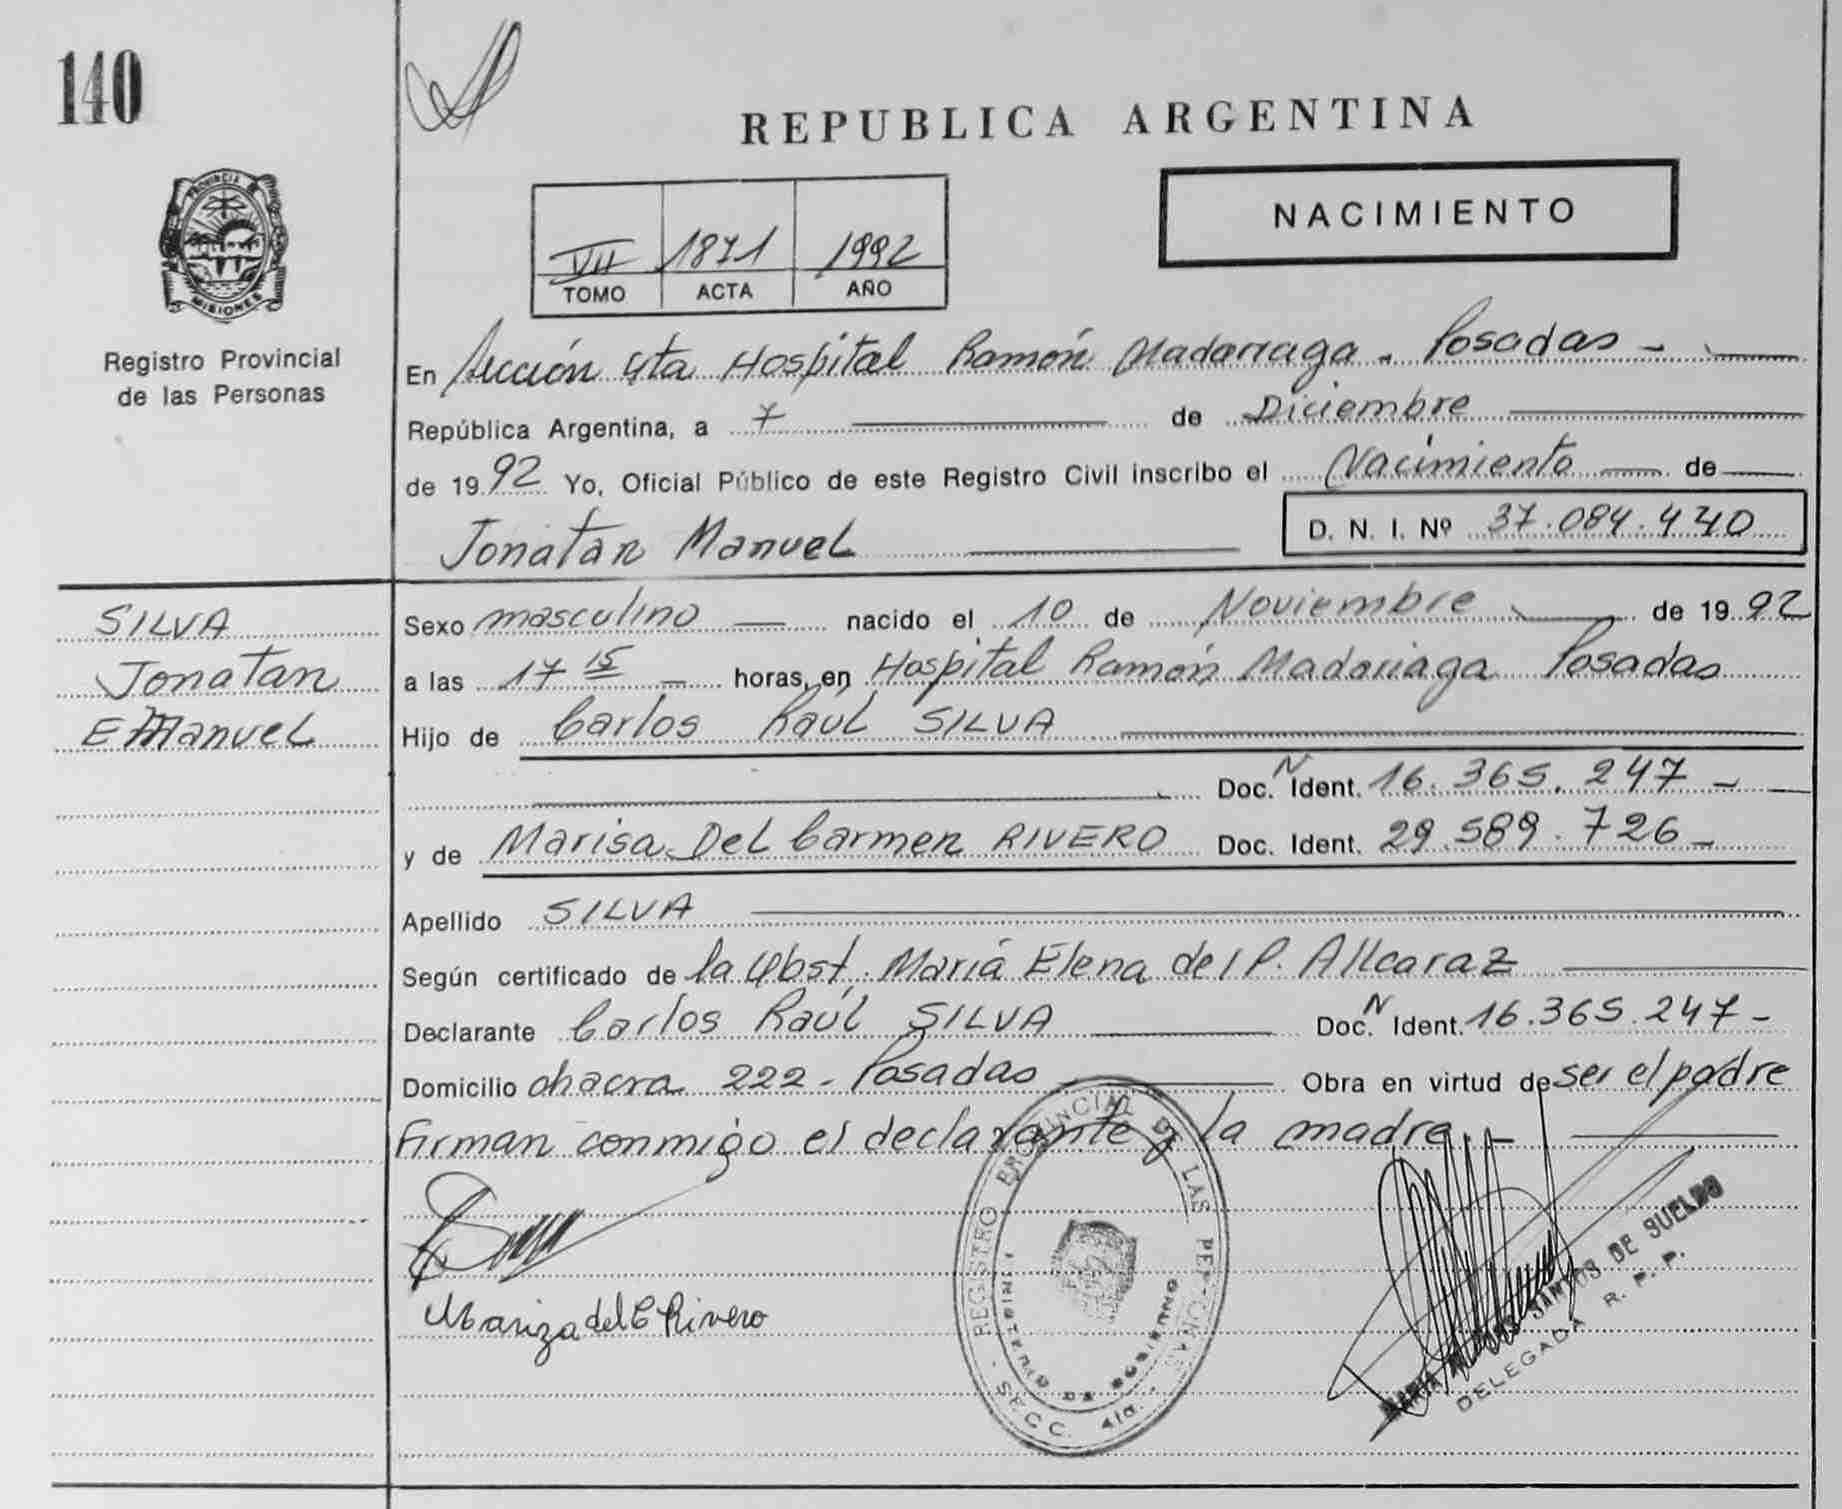 140
REPUBLICA ARGENTINA
PROVINCIA DE
MISIONES
Registro Provincial
de las Personas
VII 1871 1992
TOMO ACTA AÑO
NACIMIENTO
En Sección 4ta Hospital Ramón Madariaga - Posadas -
República Argentina, a 7 de Diciembre
de 1992 Yo, Oficial Público de este Registro Civil inscribo el Nacimiento de
Jonatan Manuel D. N. I. Nº 37.084.440
SILVA
Jonatan
EManuel
Sexo masculino nacido el 10 de Noviembre de 1992
a las 17 15 horas, en Hospital Ramón Madariaga Posadas
Hijo de Carlos Raúl SILVA
Doc. N Ident. 16.365.247 -
y de Marisa Del Carmen RIVERO Doc. Ident. 29.589.726 -
Apellido SILVA
Según certificado de la Obst. María Elena del P. Allcaraz
Declarante Carlos Raúl SILVA Doc. N Ident. 16.365.247 -
Domicilio chacra 222 - Posadas Obra en virtud de ser el padre
Firman conmigo el declarante y la madre. -
Mariza del C Rivero
REGISTRO PROVINCIAL DE LAS PERSONAS
MINISTERIO DE GOBIERNO
SECC. 4ta.
MARIA SANTOS DE SUELDO
DELEGADA R. P. P.